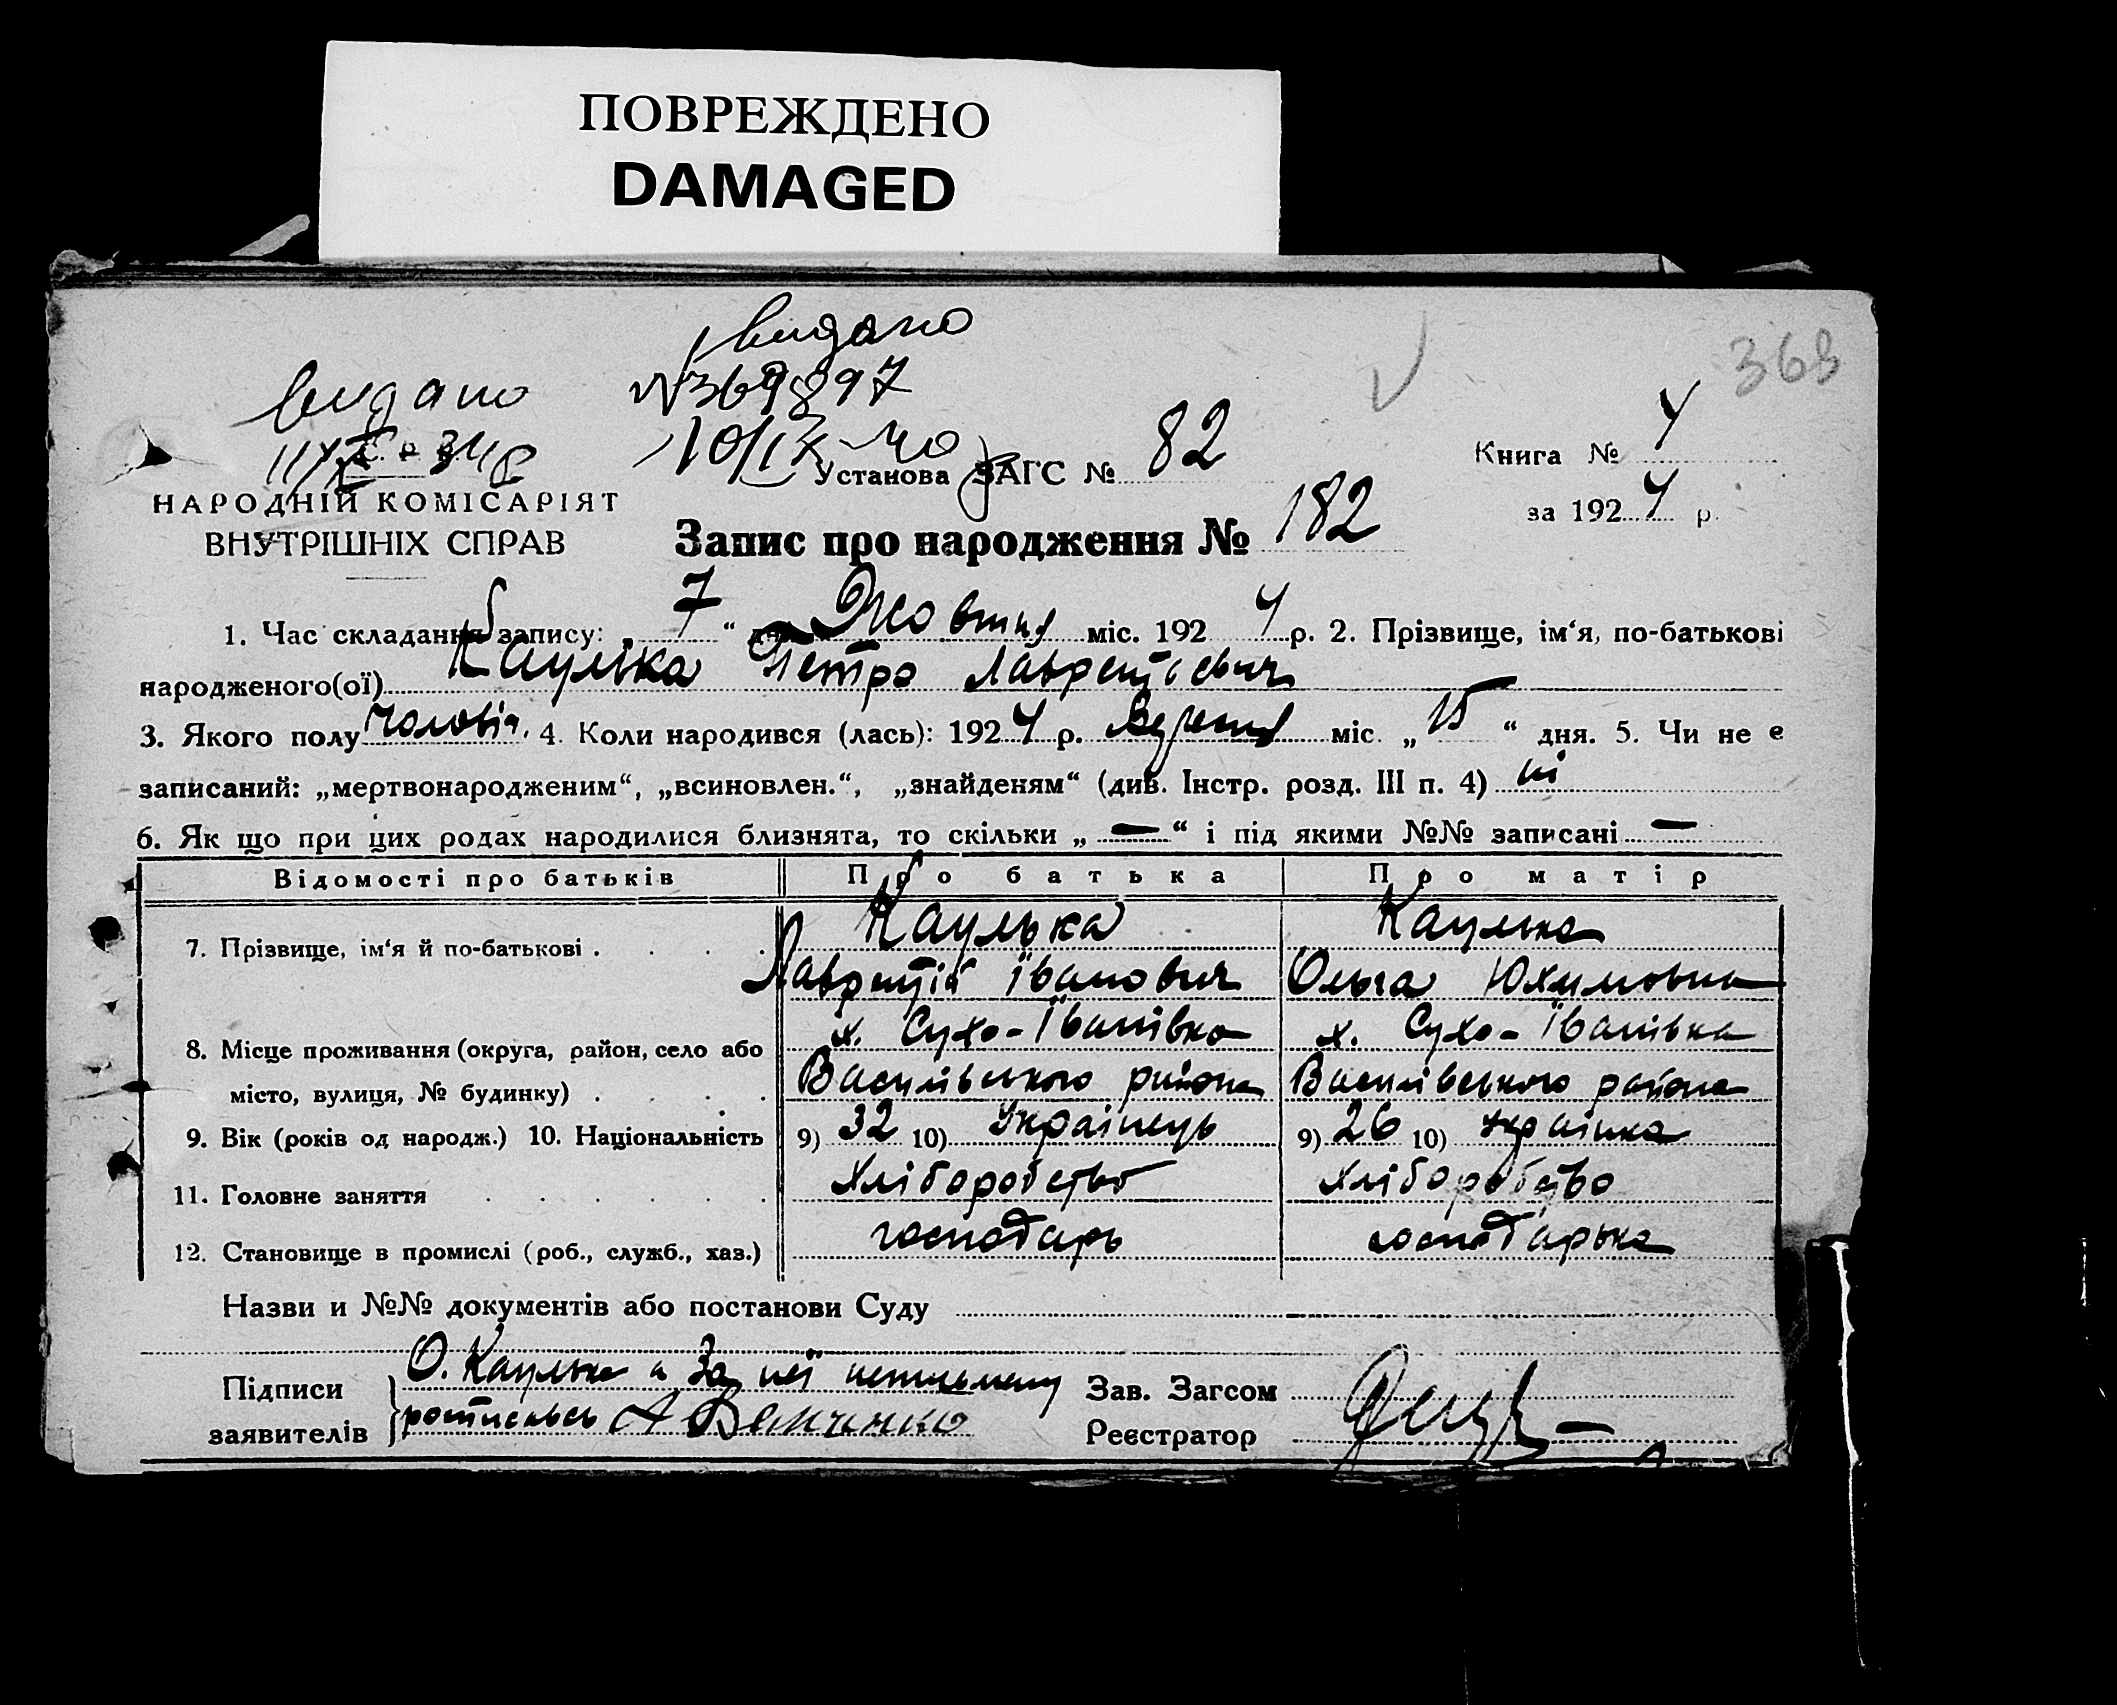 ПОВРЕЖДЕНО
DAMAGED
видано
видано №369897
368
10/IX-40
Установа ЗАГС № 82
Книга № 4
НАРОДНІЙ КОМІСАРІЯТ
за 1924 р.
ВНУТРІШНІХ СПРАВ
Запис про народження № 182
1. Час складання запису: „ 7 “ дня Жовтня міс. 1924 р. 2. Прізвище, ім‘я, по-батькові
народженого(ої) Каулька Петро Лаврентієвич
3. Якого полу чоловіч. 4. Коли народився (лась): 1924 р. Вересня міс. „ 15 “ дня. 5. Чи не є
записаний: „мертвонародженим“, „всиновлен.“, „знайденям“ (див. Інстр. розд. III п. 4) ні
6. Як що при цих родах народилися близнята, то скільки „ — “ і під якими №№ записані —
Відомості про батьків Про батька Про матір
Каулька Каулька
7. Прізвище, ім‘я й по-батькові . . . .
Лаврентій Іванович Ольга Юхимовна
х. Сухо-Іванівка х. Сухо-Іванівка
8. Місце проживання (округа, район, село або
Василівського района Василівського района
місто, вулиця, № будинку) . . . .
9. Вік (років од народж.) 10. Національність 9) 32 10) Українець 9) 26 10) Українка
11. Головне заняття . . . . . . Хліборобство Хліборобство
12. Становище в промислі (роб., служб., хаз.) господарь господарька
Назви и №№ документів або постанови Суду
Підписи О. Каулька а За неї неписьмену Зав. Загсом
заявителів росписавсь А Реєстратор